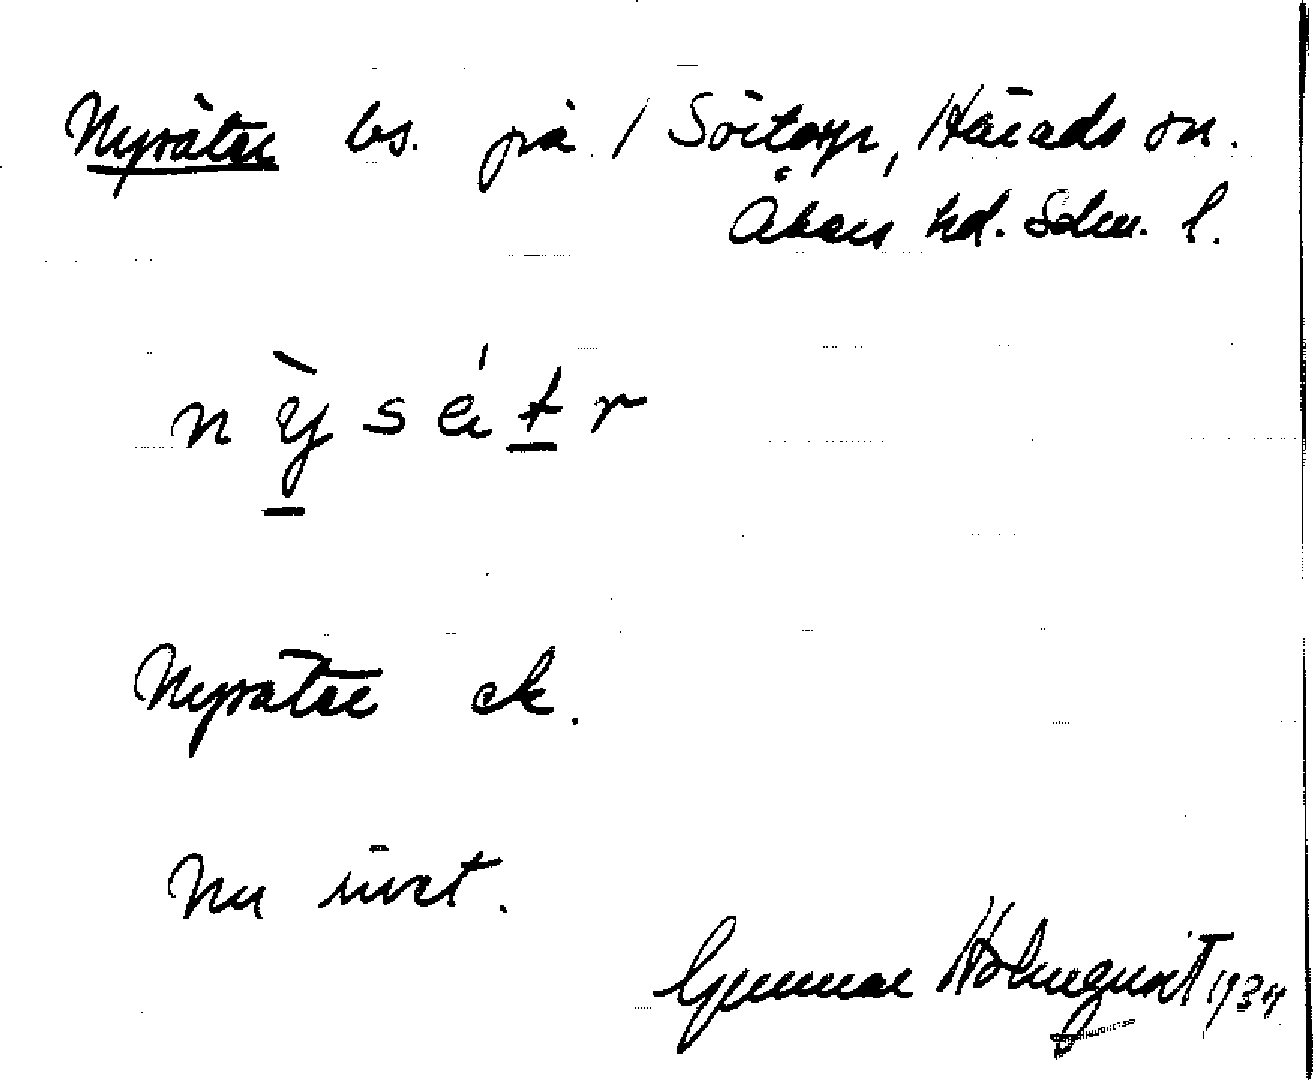 Nysäter bs. på / Sörtorp, Härads sn.
Åkers hd. Södm. l.
nỳsétr
Nysäter ek.
Nu rivet.
Gunnar Holmquist 1934